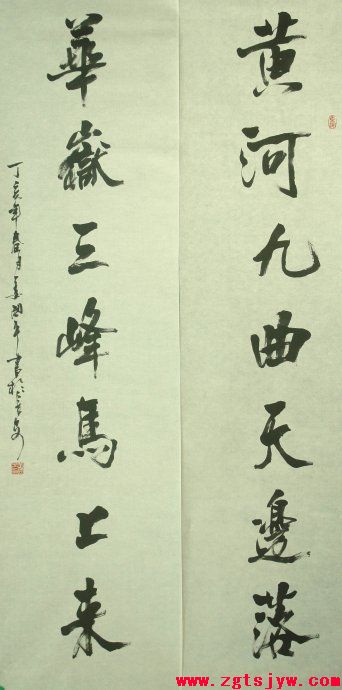 黄河九曲天邊落
華嶽三峰馬上来
丁亥年春月姜國平書於
www.zgtsjyw.com